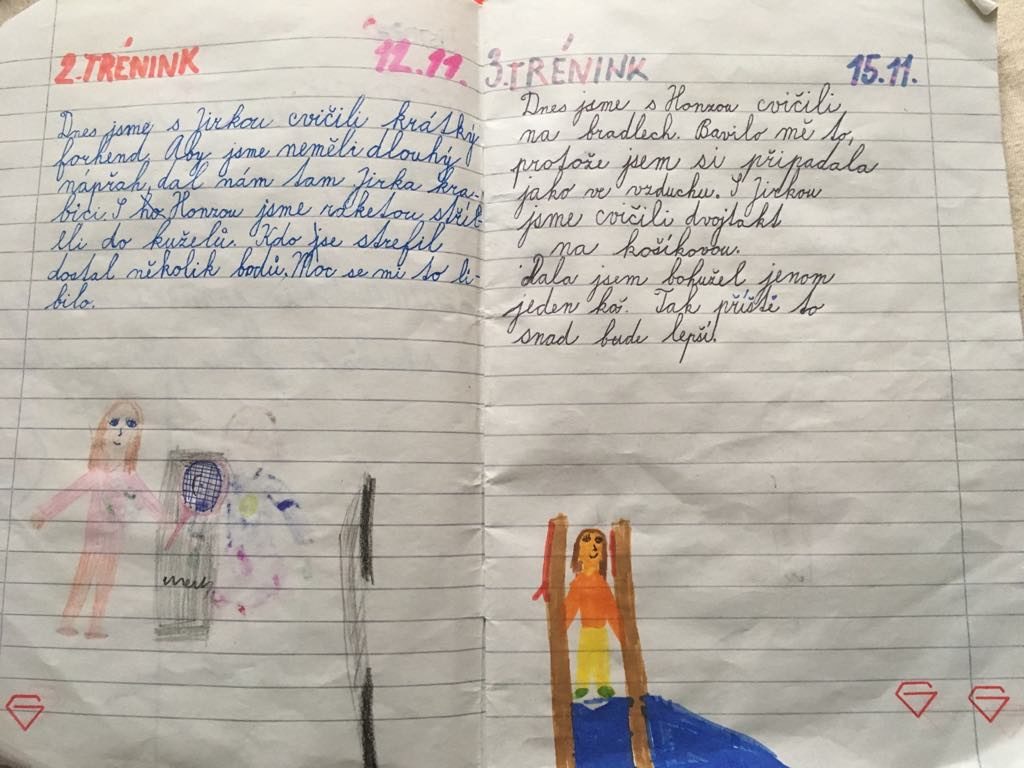 2. TRÉNINK
12.11.
Dnes jsme s Jirkou cvičili krátký
forhend. Aby jsme neměli dlouhý
nápřah, dal nám tam Jirka kra-
bici. S Honzou jsme raketou stříl
eli do kuželů. Kdo jse strefil
dostal několik bodů. Moc se mi to lí-
bilo.
3. TRÉNINK
15.11.
Dnes jsme s Honzou cvičili
na bradlech. Bavilo mě to,
protože jsem si připadala
jako ve vzduchu. S Jirkou
jsme cvičili dvojtakt
na košíkovou.
Dala jsem bohužel jenom
jeden koš. Tak příště to
snad bude lepší.